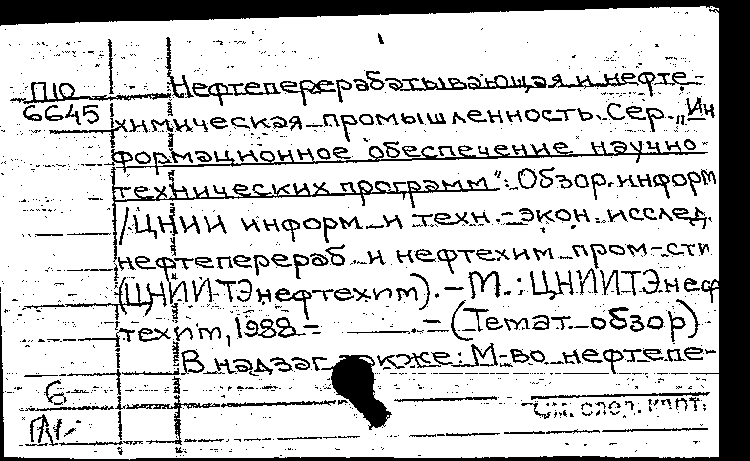 П10
6645
Нефтеперерабатывающая и нефте-
химическая промышленность. Сер. „Ин
формационное обеспечение научно-
технических программ": Обзор. информ
/ЦНИИ информ. и техн.-экон. исслед.
нефтеперераб. и нефтехим. пром-сти
(ЦНИИТЭнефтехим). - М.: ЦНИИТЭнеф
техим, 1988 - . - (Темат. обзор)
В надзаг. также: М-во нефтепе-
6
См. след. карт.